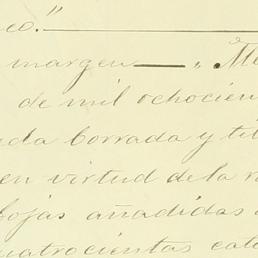 co."
margen — „ Me
de mil ochocien
ada borrada y
en virtud de la
hojas añadidas
uatrocientas cato